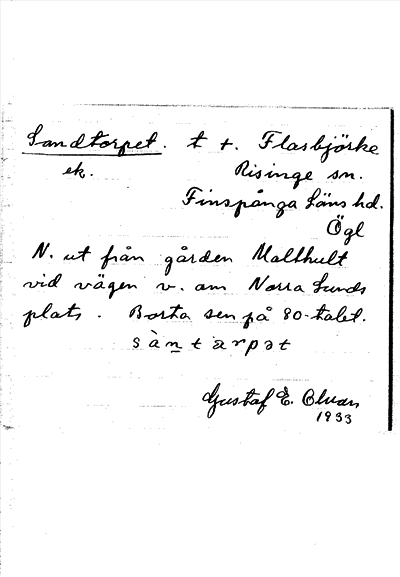 Sandtorpet. t t. Flasbjörke
ek. Risinge sn.
Finspånga Läns hd.
Ögl
N. ut från gården Malthult
vid vägen v. om Norra Lunds
plats. Borta sen på 80-talet.
sàntarpət
Gustaf E.
1933